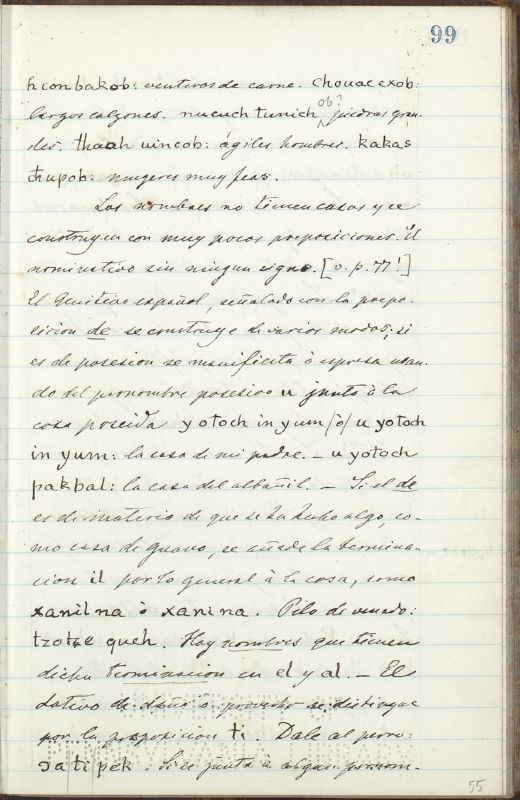 99
hconbakob: ventivos de carne. chouac exob:
largos calzones. nucuch tunich ob? piedras gran-
des. thaah uincob: ágiles hombres. kakas
chupob: mugeres muy feas.
Los nombres no tienen casos y se
construyen con muy pocas preposiciones. El
nominativo sin ningun signo. [v. p. 77!]
El Genitivo español, señalado con la prepo-
sicion de se construye de varios modos; si
es de posesion se manifiesta ò espresa usan-
do del pronombre posesivo u junto à la
cosa poseida yotoch in yum /ò/ u yotoch
in yum: la casa de mi padre. – u yotoch
pakbal: la casa del albañil. – Si el de
es de materia de que se ha hecho algo, co-
mo casa de guano, se añade la termina-
cion il por lo general à la cosa, como
xanilna ò xanina. Pelo de venado:
tzotze queh. Hay nombres que tienen
dicha terminacion en el y al. – El
dativo de daño ò provecho se distingue
por la preposicion ti. Dale al perro:
ɔa ti pek. Si se junta à algun pronom-
55